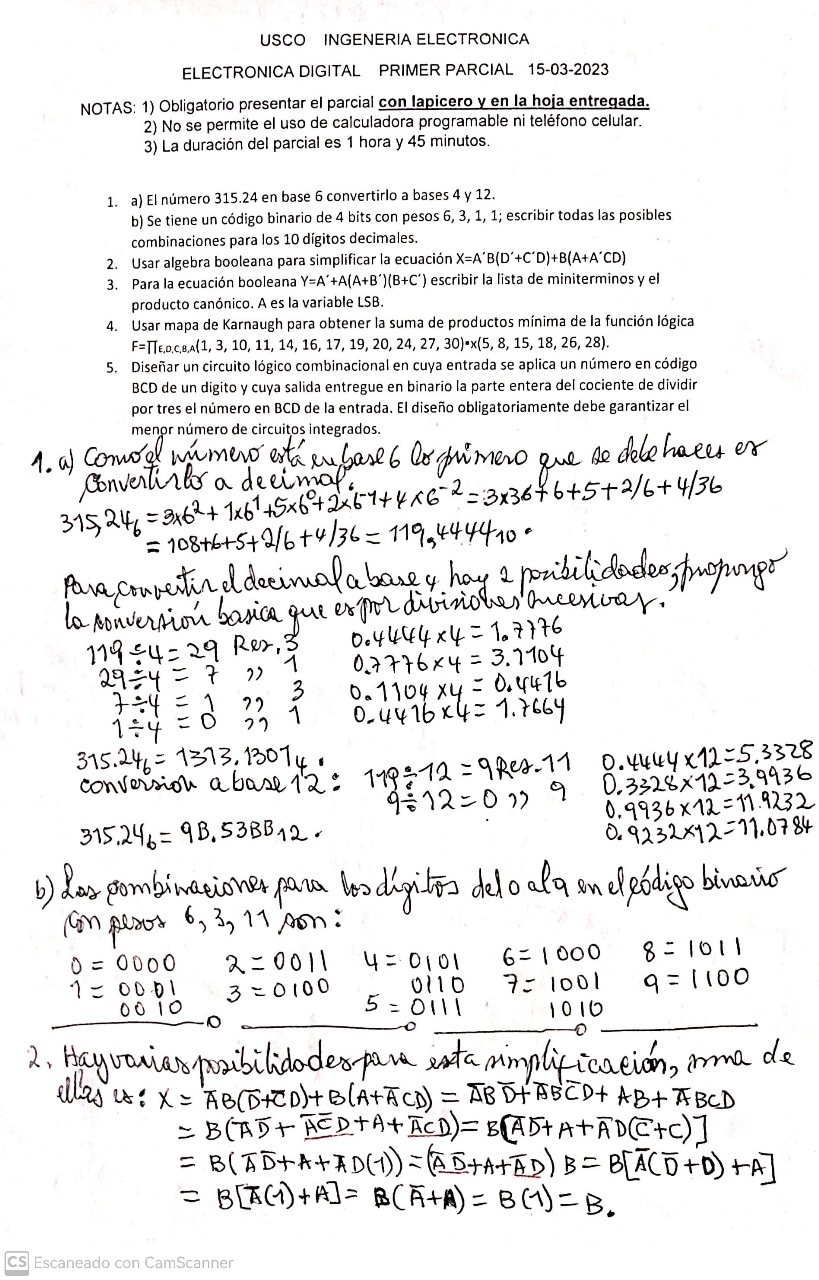 USCO INGENERIA ELECTRONICA
ELECTRONICA DIGITAL PRIMER PARCIAL 15-03-2023
NOTAS: 1) Obligatorio presentar el parcial con lapicero y en la hoja entregada.
2) No se permite el uso de calculadora programable ni teléfono celular.
3) La duración del parcial es 1 hora y 45 minutos.
1. a) El número 315.24 en base 6 convertirlo a bases 4 y 12.
b) Se tiene un código binario de 4 bits con pesos 6, 3, 1, 1; escribir todas las posibles
combinaciones para los 10 dígitos decimales.
2. Usar algebra booleana para simplificar la ecuación X=A´B(D´+C´D)+B(A+A´CD)
3. Para la ecuación booleana Y=A´+A(A+B´)(B+C´) escribir la lista de miniterminos y el
producto canónico. A es la variable LSB.
4. Usar mapa de Karnaugh para obtener la suma de productos mínima de la función lógica
F=∏E,D,C,B,A(1, 3, 10, 11, 14, 16, 17, 19, 20, 24, 27, 30)•x(5, 8, 15, 18, 26, 28).
5. Diseñar un circuito lógico combinacional en cuya entrada se aplica un número en código
BCD de un digito y cuya salida entregue en binario la parte entera del cociente de dividir
por tres el número en BCD de la entrada. El diseño obligatoriamente debe garantizar el
menor número de circuitos integrados.
1. a) Como el número está en base 6 lo primero que se debe hacer es
convertirlo a decimal.
315,24₆ = 3x6² + 1x6¹ + 5x6⁰ + 2x6⁻¹ + 4x6⁻² = 3x36+6+5+2/6+4/36
= 108+6+5+2/6+4/36 = 119,4444₁₀.
Para convertir el decimal a base 4 hay 2 posibilidades, propongo
la conversión basica que es por divisiones sucesivas.
119÷4 = 29 Res. 3 0.4444x4 = 1.7776
29÷4 = 7 " 1 0.7776x4 = 3.1104
7÷4 = 1 " 3 0.1104x4 = 0.4416
1÷4 = 0 " 1 0.4416x4 = 1.7664
315.24₆ = 1313.1301₄.
conversion a base 12: 119÷12 = 9 Res. 11 0.4444x12=5.3328
9÷12 = 0 " 9 0.3328x12=3.9936
0.9936x12=11.9232
315.24₆ = 9B.53BB₁₂. 0.9232x12=11.0784
b) Las combinaciones para los dígitos del 0 al 9 en el código binario
con pesos 6, 3, 1 1 son:
0 = 0000 2 = 0011 4 = 0101 6 = 1000 8 = 1011
1 = 0001 3 = 0100 0110 7 = 1001 9 = 1100
0010 5 = 0111 1010
2. Hay varias posibilidades para esta simplificación, una de
ellas es: X = A̅B(D̅+C̅D)+B(A+A̅CD) = A̅BD̅+A̅BC̅D+AB+A̅BCD
= B(A̅D̅+A̅C̅D+A+A̅CD) = B[A̅D̅+A+A̅D(C̅+C)]
= B(A̅D̅+A+A̅D(1)) = (A̅D̅+A+A̅D)B = B[A̅(D̅+D)+A]
= B[A̅(1)+A] = B(A̅+A) = B(1) = B.
CS Escaneado con CamScanner